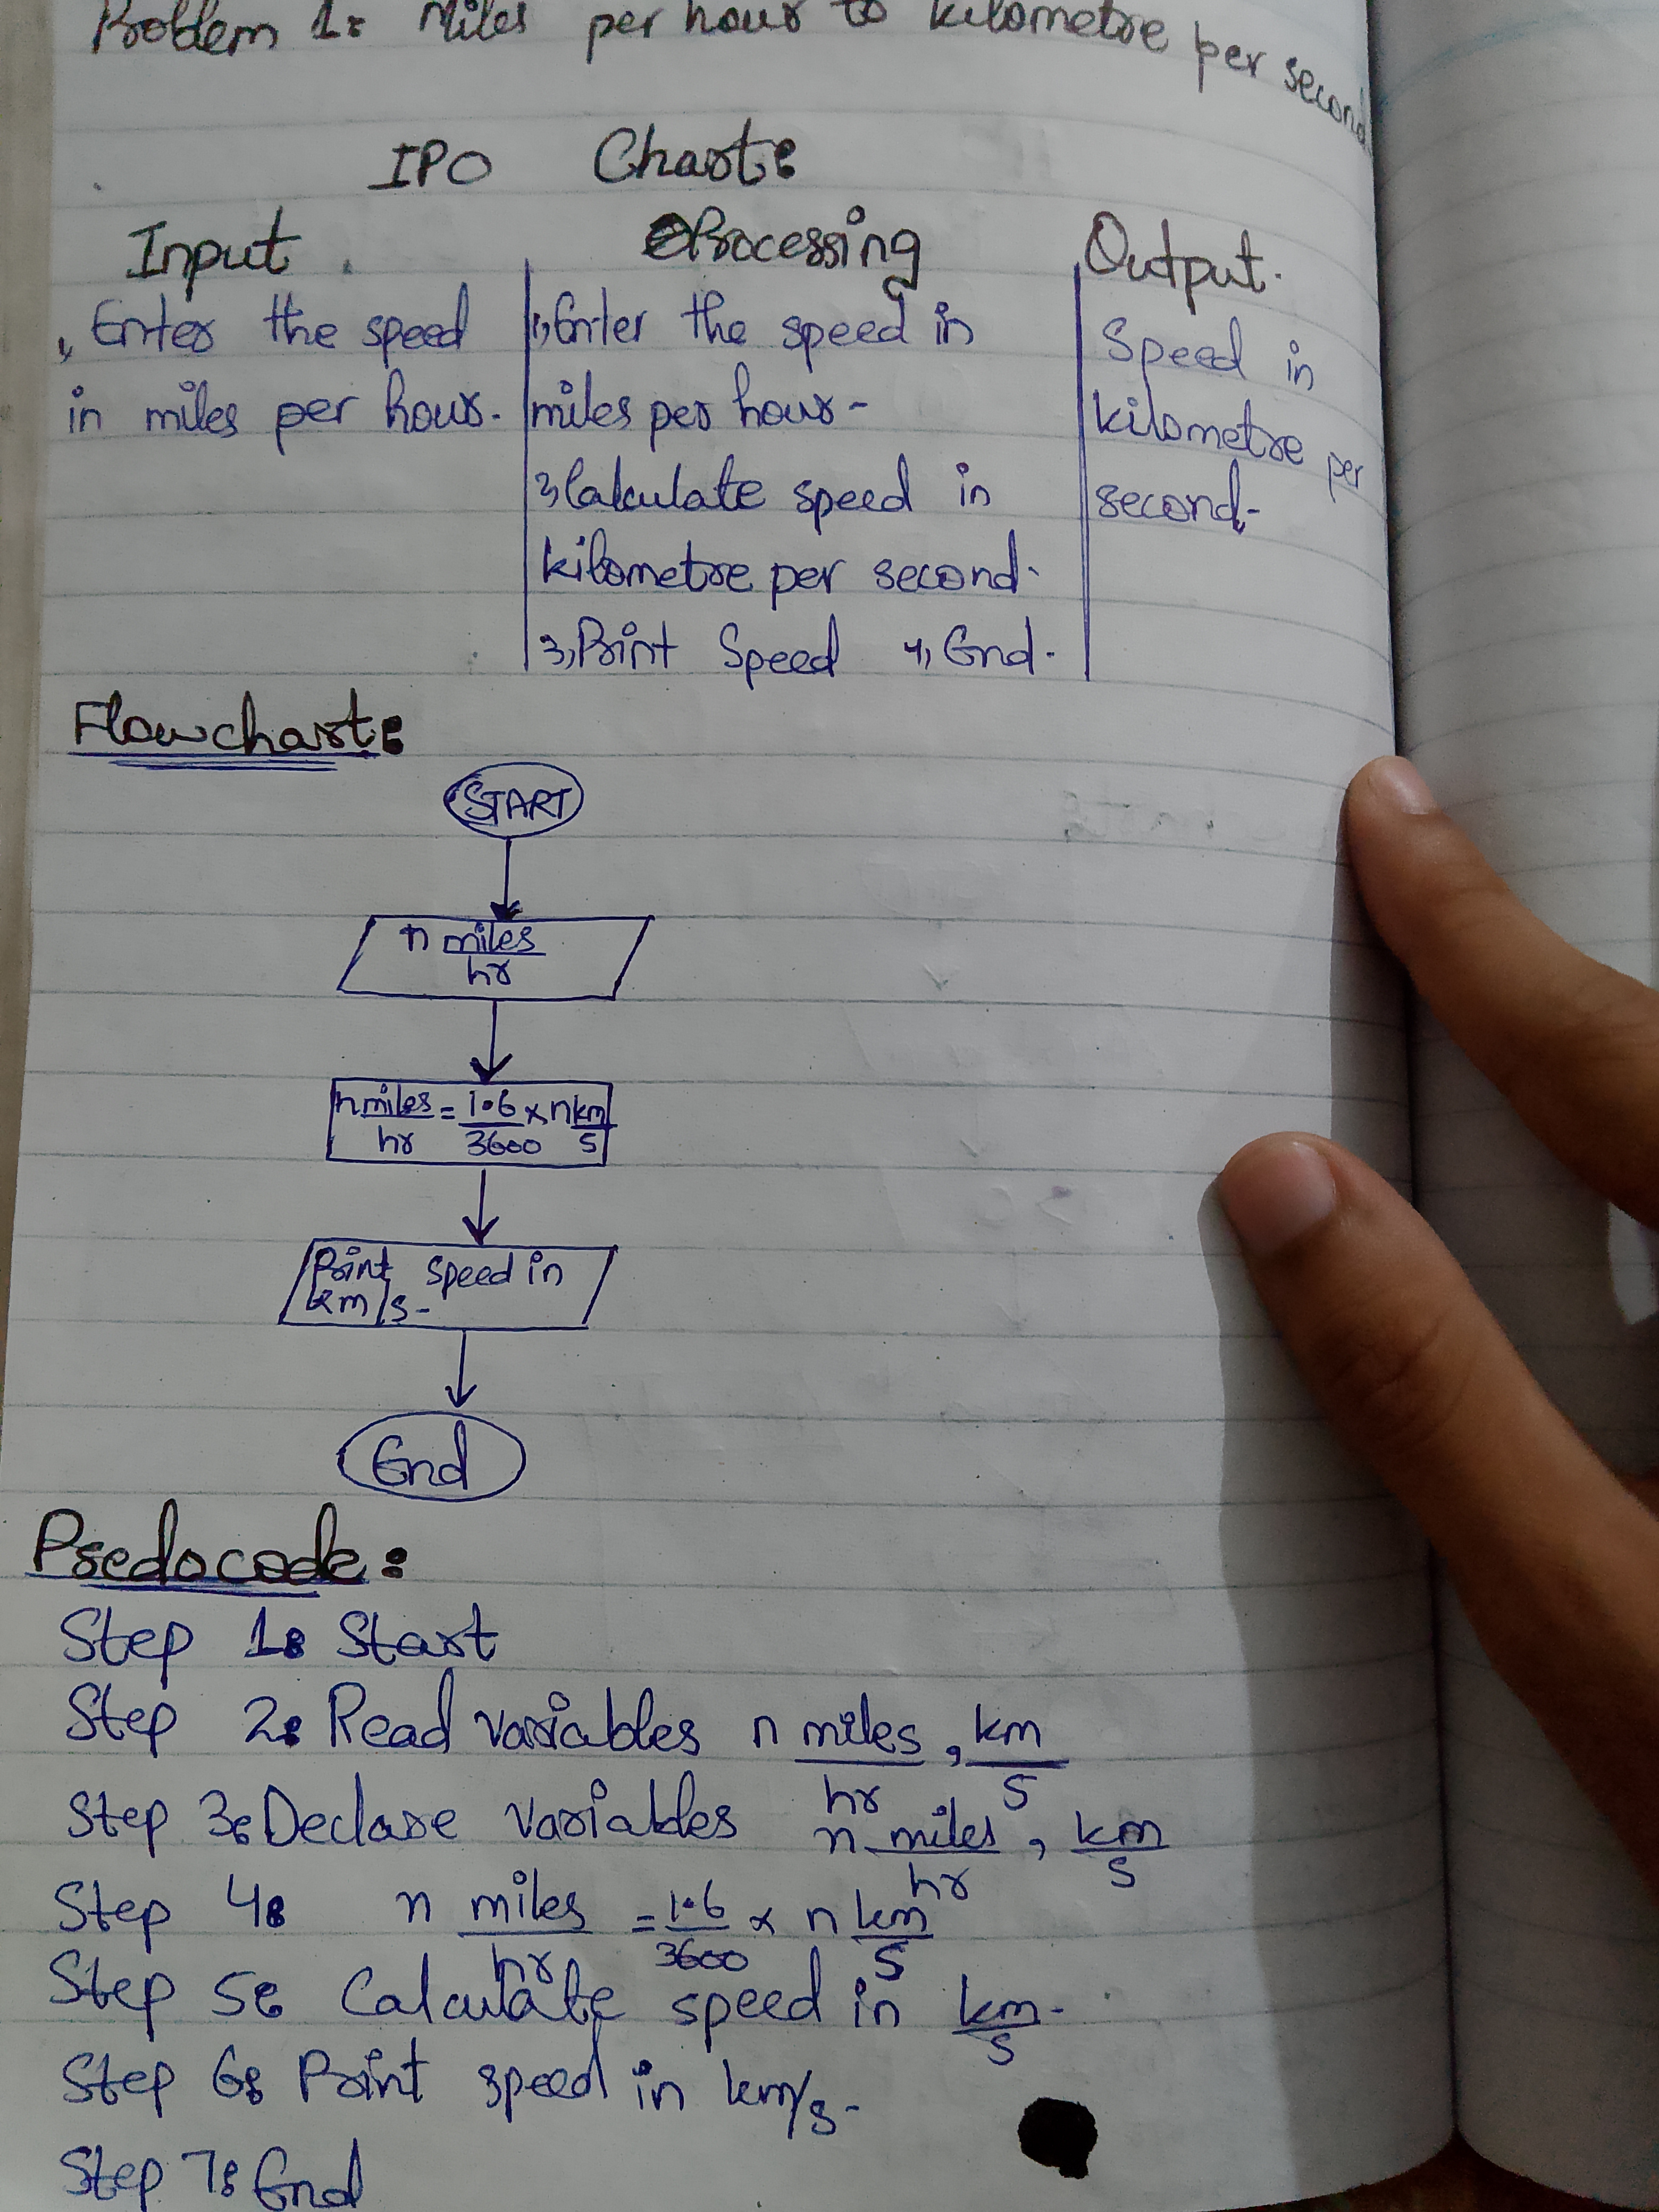 Problem 1: Miles per hour to kilometre per second
IPO Chart:
Input Processing Output.
1, Enter the speed
in miles per hour.
1, Enter the speed in
miles per hour-
2, Calculate speed in
kilometre per second.
3, Print Speed 4, End.
Speed in
kilometre per
second-
Flowchart:
START
n miles
hr
n miles = 1.6 x n km
hr 3600 s
Print speed in
km/s-
End
Psedocode:
Step 1: Start
Step 2: Read variables n miles, km
hr s
Step 3: Declare variables n miles, km
hr s
Step 4: n miles = 1.6 x n km
hr 3600 s
Step 5: Calculate speed in km.
s
Step 6: Print speed in km/s-
Step 7: End